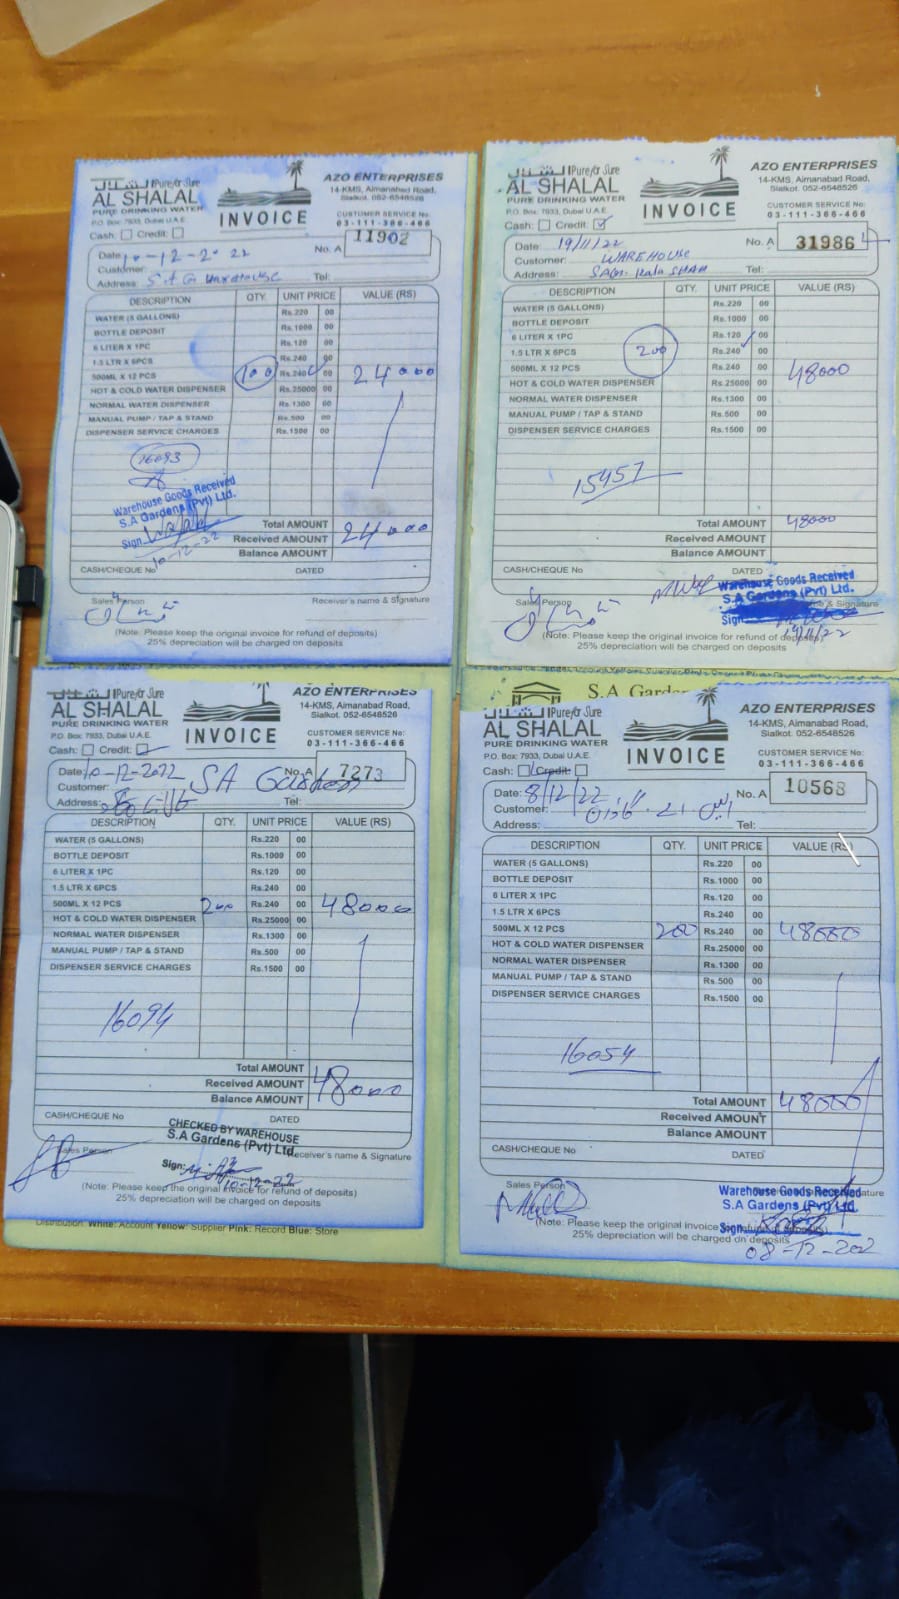 Pure for Sure
AL SHALAL
PURE DRINKING WATER
P.O. Box: 7933, Dubai U.A.E.
Cash: Credit:
INVOICE
AZO ENTERPRISES
14-KMS, Aimanabad Road,
Sialkot. 052-6548526
CUSTOMER SERVICE No:
03-111-366-466
No. A 11902
Date: 10-12-2022
Customer:
Address: S.A G Warehouse Tel:
DESCRIPTION QTY. UNIT PRICE VALUE (RS)
WATER (5 GALLONS) Rs.220 00
BOTTLE DEPOSIT Rs.1000 00
6 LITER X 1PC Rs.120 00
1.5 LTR X 6PCS Rs.240 00
500ML X 12 PCS 100 Rs.240 00 24000
HOT & COLD WATER DISPENSER Rs.25000 00
NORMAL WATER DISPENSER Rs.1300 00
MANUAL PUMP / TAP & STAND Rs.500 00
DISPENSER SERVICE CHARGES Rs.1500 00
16093
Warehouse Goods Received
S.A Gardens (Pvt) Ltd.
Sign
10-12-22
Total AMOUNT
Received AMOUNT 24000
Balance AMOUNT
CASH/CHEQUE No DATED
Sales Person Receiver's name & Signature
(Note: Please keep the original invoice for refund of deposits)
25% depreciation will be charged on deposits
Pure for Sure
AL SHALAL
PURE DRINKING WATER
P.O. Box: 7933, Dubai U.A.E.
Cash: Credit:
INVOICE
AZO ENTERPRISES
14-KMS, Aimanabad Road,
Sialkot. 052-6548526
CUSTOMER SERVICE No:
03-111-366-466
Date: 19/11/22 No. A 31986
Customer: WAREHOUSE
Address: SAG. Kala SHAH Tel:
DESCRIPTION QTY. UNIT PRICE VALUE (RS)
WATER (5 GALLONS) Rs.220 00
BOTTLE DEPOSIT Rs.1000 00
6 LITER X 1PC Rs.120 00
1.5 LTR X 6PCS 200 Rs.240 00
500ML X 12 PCS Rs.240 00 48000
HOT & COLD WATER DISPENSER Rs.25000 00
NORMAL WATER DISPENSER Rs.1300 00
MANUAL PUMP / TAP & STAND Rs.500 00
DISPENSER SERVICE CHARGES Rs.1500 00
15457
Total AMOUNT 48000
Received AMOUNT
Balance AMOUNT
CASH/CHEQUE No DATED
Warehouse Goods Received
S.A Gardens (Pvt) Ltd.
Sales Person & Signature
Sign
19/11/22
(Note: Please keep the original invoice for refund of deposits)
25% depreciation will be charged on deposits
Pure for Sure
AL SHALAL
PURE DRINKING WATER
P.O. Box: 7933, Dubai U.A.E.
Cash: Credit:
INVOICE
AZO ENTERPRISES
14-KMS, Aimanabad Road,
Sialkot. 052-6548526
CUSTOMER SERVICE No:
03-111-366-466
Date: 10-12-2022 No. A 7273
Customer: SA Gardens
Address: Tel:
DESCRIPTION QTY. UNIT PRICE VALUE (RS)
WATER (5 GALLONS) Rs.220 00
BOTTLE DEPOSIT Rs.1000 00
6 LITER X 1PC Rs.120 00
1.5 LTR X 6PCS Rs.240 00
500ML X 12 PCS 200 Rs.240 00 48000
HOT & COLD WATER DISPENSER Rs.25000 00
NORMAL WATER DISPENSER Rs.1300 00
MANUAL PUMP / TAP & STAND Rs.500 00
DISPENSER SERVICE CHARGES Rs.1500 00
16094
Total AMOUNT
Received AMOUNT 48000
Balance AMOUNT
CASH/CHEQUE No DATED
CHECKED BY WAREHOUSE
S.A Gardens (Pvt) Ltd.
Sales Person Receiver's name & Signature
Sign:
10-12-22
(Note: Please keep the original invoice for refund of deposits)
25% depreciation will be charged on deposits
Distribution: White: Account Yellow: Supplier Pink: Record Blue: Store
S.A Garde
Pure for Sure
AL SHALAL
PURE DRINKING WATER
P.O. Box: 7933, Dubai U.A.E.
Cash: Credit:
INVOICE
AZO ENTERPRISES
14-KMS, Aimanabad Road,
Sialkot. 052-6548526
CUSTOMER SERVICE No:
03-111-366-466
Date: 8/12/22 No. A 10568
Customer: ایس اے گارڈن
Address: Tel:
DESCRIPTION QTY. UNIT PRICE VALUE (RS)
WATER (5 GALLONS) Rs.220 00
BOTTLE DEPOSIT Rs.1000 00
6 LITER X 1PC Rs.120 00
1.5 LTR X 6PCS Rs.240 00
500ML X 12 PCS 200 Rs.240 00 48000
HOT & COLD WATER DISPENSER Rs.25000 00
NORMAL WATER DISPENSER Rs.1300 00
MANUAL PUMP / TAP & STAND Rs.500 00
DISPENSER SERVICE CHARGES Rs.1500 00
16054
Total AMOUNT 48000
Received AMOUNT
Balance AMOUNT
CASH/CHEQUE No DATED
Sales Person
Warehouse Goods Received
S.A Gardens (Pvt) Ltd.
Sign
(Note: Please keep the original invoice
25% depreciation will be charged on deposits
08-12-202